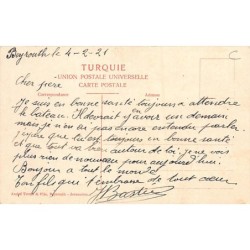 Bayrouth le 4-2-21
C
TURQUIE
UNION POSTALE UNIVERSELLE
CARTE POSTALE
Correspondance Adresse
Cher frere
Je suis en bonne santé toujours a attendre
le bateau. Il devrait y avoir un demain
mais je n'en ai pas encore entendu parler
j'espère que tu es toujours en bonne santé
et que tout va bon autour de toi, je ne vois
plus rien de nouveau pour aujourd'hui
Bonjour a tout le monde
Ton fils qui t'embrasse de tout coeur